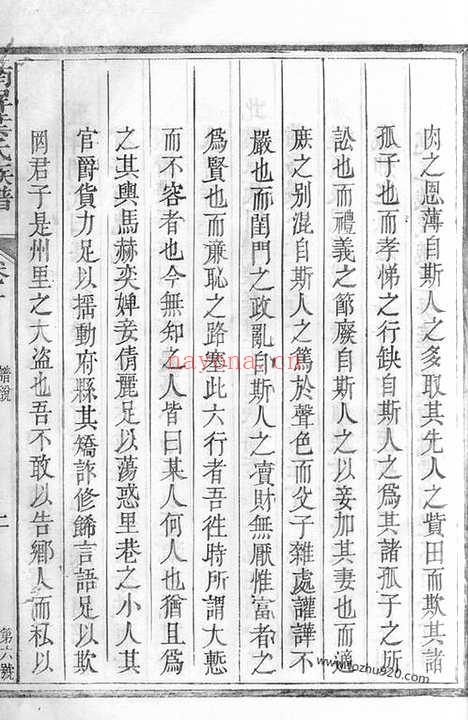 肉之恩薄自斯人之多取其先人之貲田而欺其諸
孤子也而孝悌之行缺自斯人之爲其諸孤子之所
訟也而禮義之節廢自斯人之以妾加其妻也而適
庶之别混自斯人之篤於聲色而父子雜處讙譁不
嚴也而閨門之政亂自斯人之瀆財無厭惟富者之
爲賢也而廉恥之路塞此六行者吾徃時所謂大慙
而不容者也今無知之人皆曰某人何人也猶且爲
之其輿馬赫奕婢妾倩麗足以蕩惑里巷之小人其
官爵貨力足以搖動府縣其矯詐修餙言語足以欺
罔君子是州里之大盗也吾不敢以告鄉人而私以
氏族譜
二
第六號
nayona.cn
www.lozhu920.com